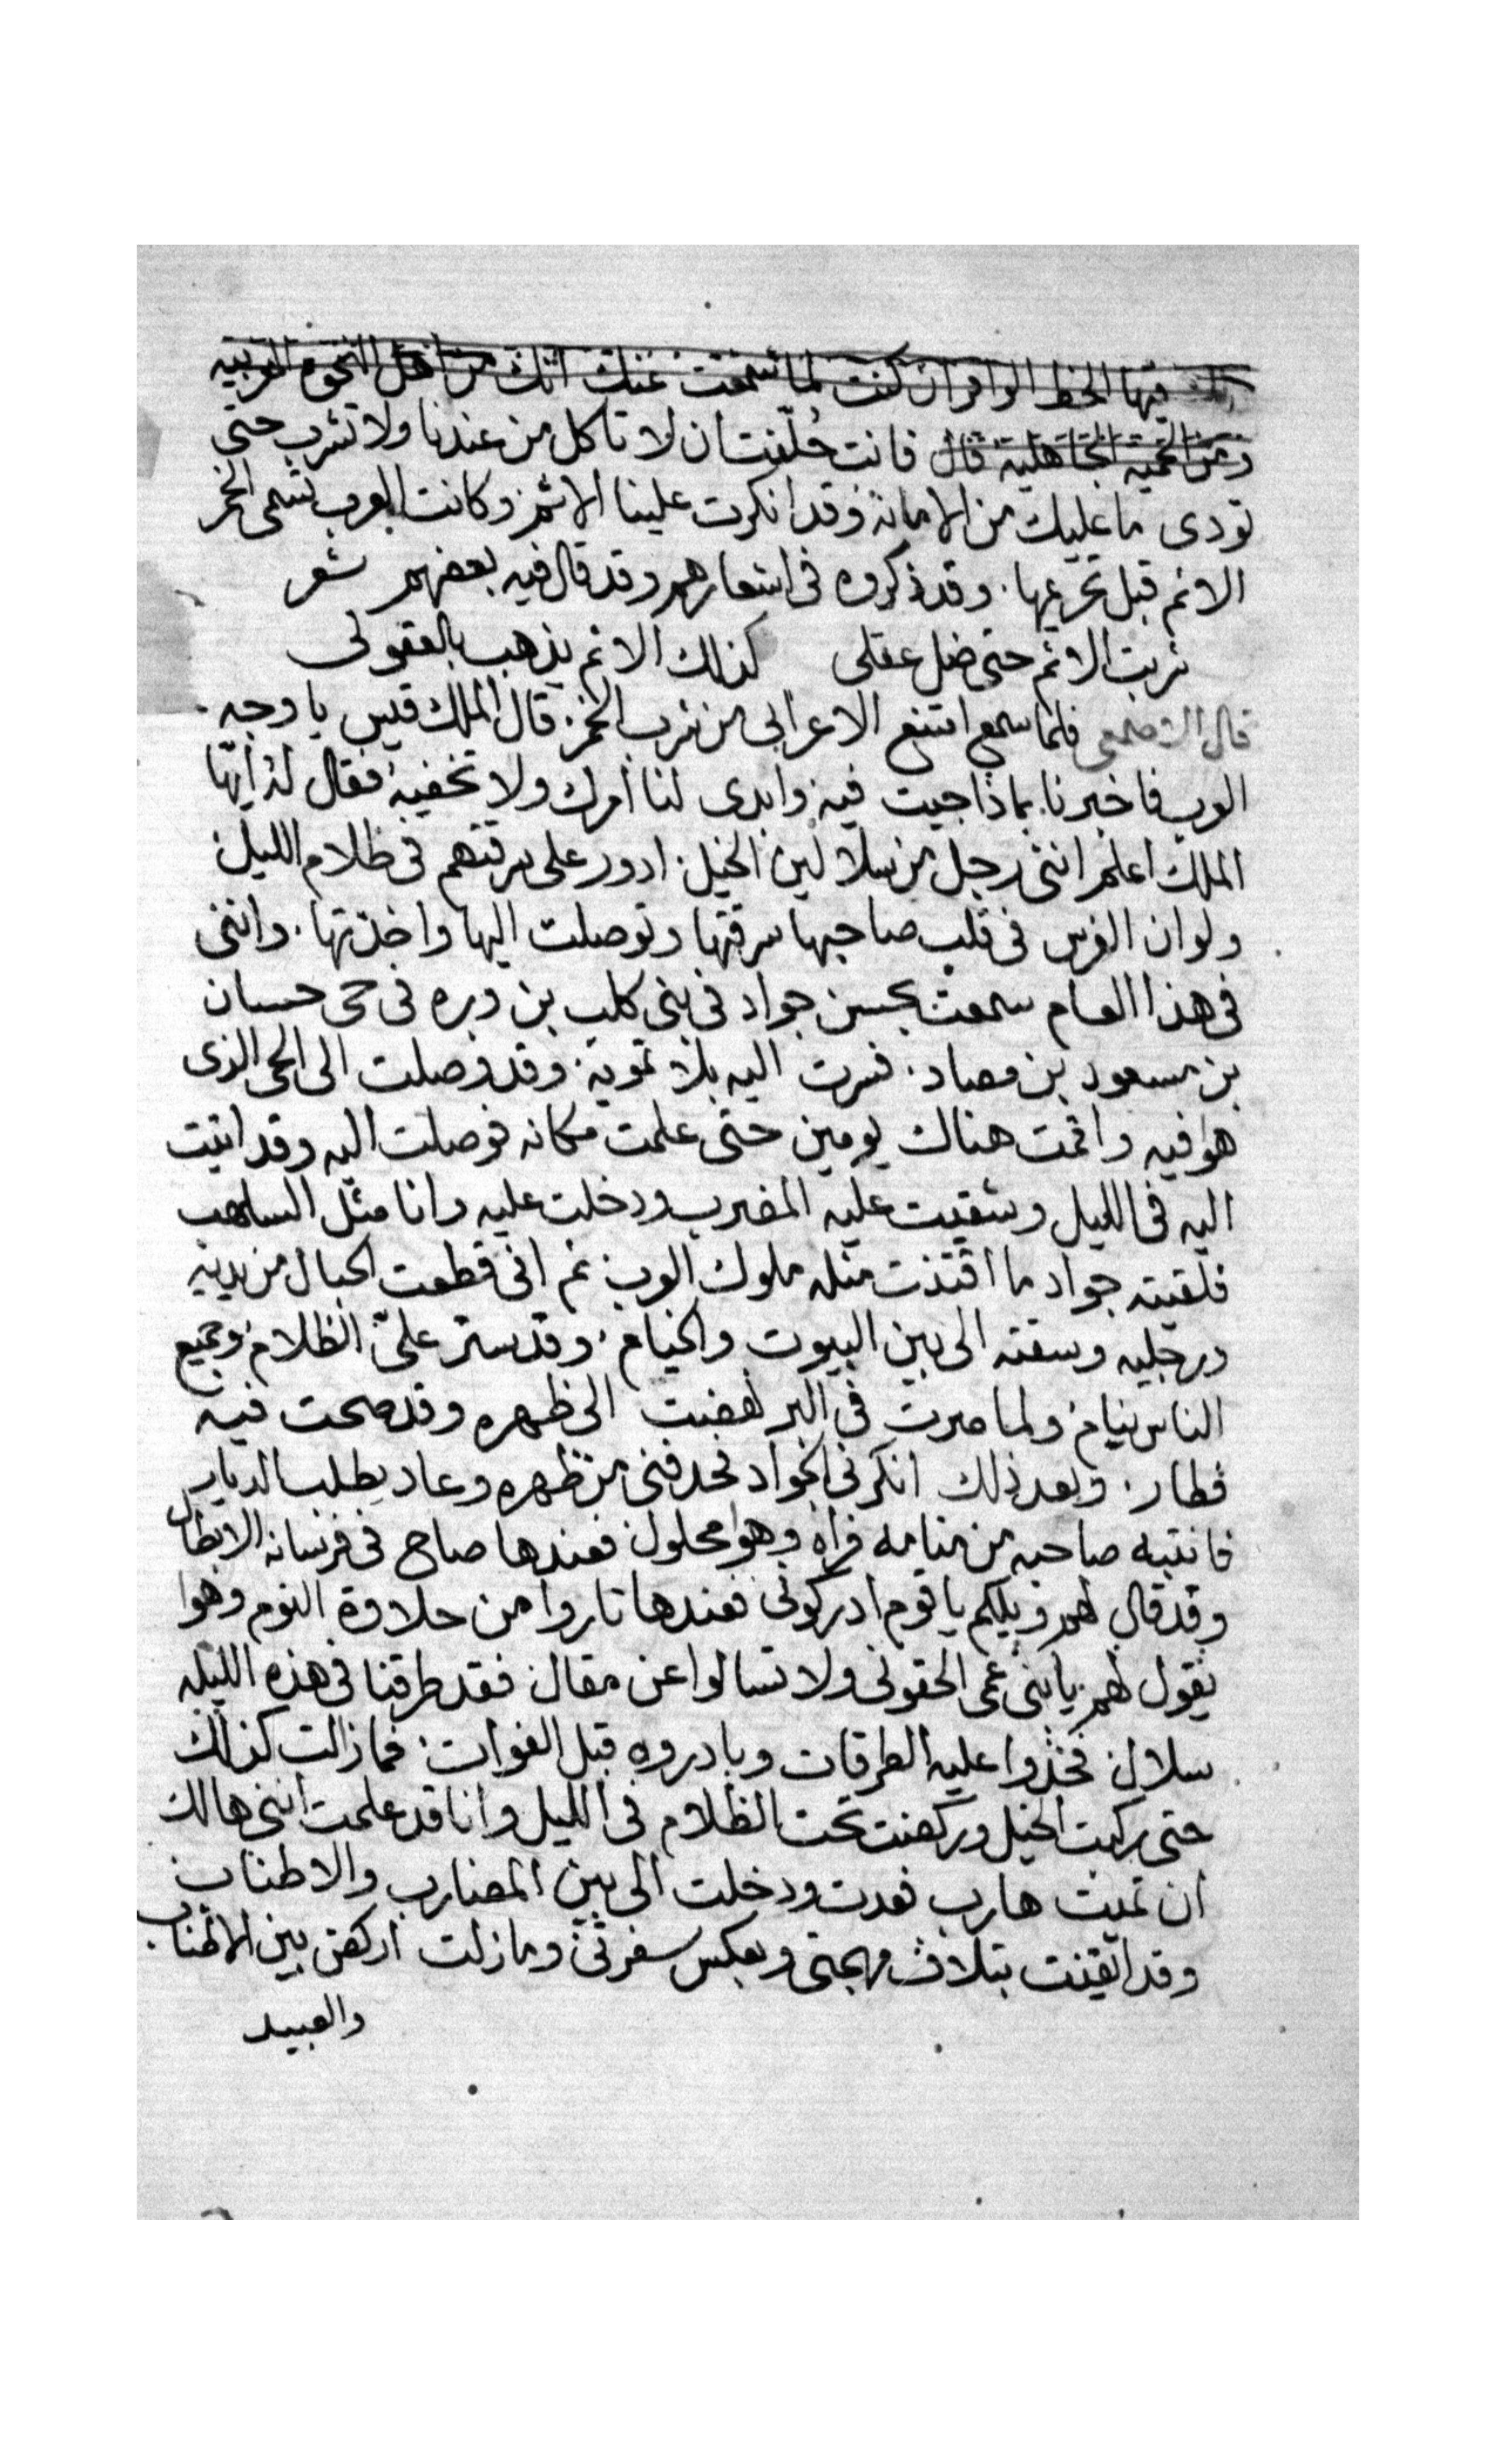 فيها الحظ الوافر ان كنت لما سمعت عنك انك من اهل النخوه العربيه
ومن الحميه الجاهليه قال فانت حُلّفت ان لا تاكل من عندنا ولا تشرب حتى
تودى ما عليك من الامانه وقد انكرت علينا الاثم وكانت العرب تسمى الخمر
الاثم قبل تحريمها. وقد ذكروه فى اشعارهم وقد قال فيه بعضهم شعر
شربت الاثم حتى ضل عقلى كذلك الاثم يذهب بالعقولى
قال الاصمعى فلما سمع امتنع الاعرابى من شرب الخمر. قال الملك قيس يا وجه
العرب فاخبرنا بماذا جيت فيه وابدى لنا امرك ولا تخفيه فقال له ايها
الملك اعلم اننى رجل من سلالين الخيل. ادور على سرقتهم فى ظلام الليل
ولو ان الفرس فى قلب صاحبها سرقتها وتوصلت اليها واخذتها. واننى
فى هذا العام سمعت بحسن جواد فى بنى كلب بن وبره فى حى حسان
بن مسعود بن مصاد. فسرت اليه بلا تمويه. وقد وصلت الى الحى الذى
هو فيه واقمت هناك يومين حتى علمت مكانه فوصلت اليه وقد اتيت
اليه فى الليل وشقيت عليه المضرب ودخلت عليه وانا مثل السلهب
فلقيته جواد ما اقتنت مثله ملوك العرب ثم انى قطعت الحبال من يديه
ورجليه وسقته الى بين البيوت والخيام. وقد ستر علىّ الظلام وجميع
الناس نيام ولما صرت فى البر نهضت الى ظهره وقد صحت فيه
فطار. وبعد ذلك انكرنى الجواد فحدفنى من ظهره وعاد يطلب الديار
فانتبه صاحبه من منامه فراه وهوا محلول فعندها صاح فى فرسانه الابطال
وقد قال لهم ويلكم يا قوم ادركونى فعندها ثاروا من حلاوة النوم وهوا
يقول لهم يا بنى عمى الحقونى ولا تسالوا عن مقال فقد طرقنا فى هذه الليله
سلال فخذوا عليه الطرقات وبادروه قبل الفوات. فما زالت كذلك
حتى ركبت الخيل وركضت تحت الظلام فى الليل وانا قد علمت اننى هالك
ان تميت هارب فعدت ودخلت الى بين المضارب والاطناب
وقد ايقنت بتلاف مهجتى وبعكس سفرتى وما زلت اركض بين الاطناب
والعبيد